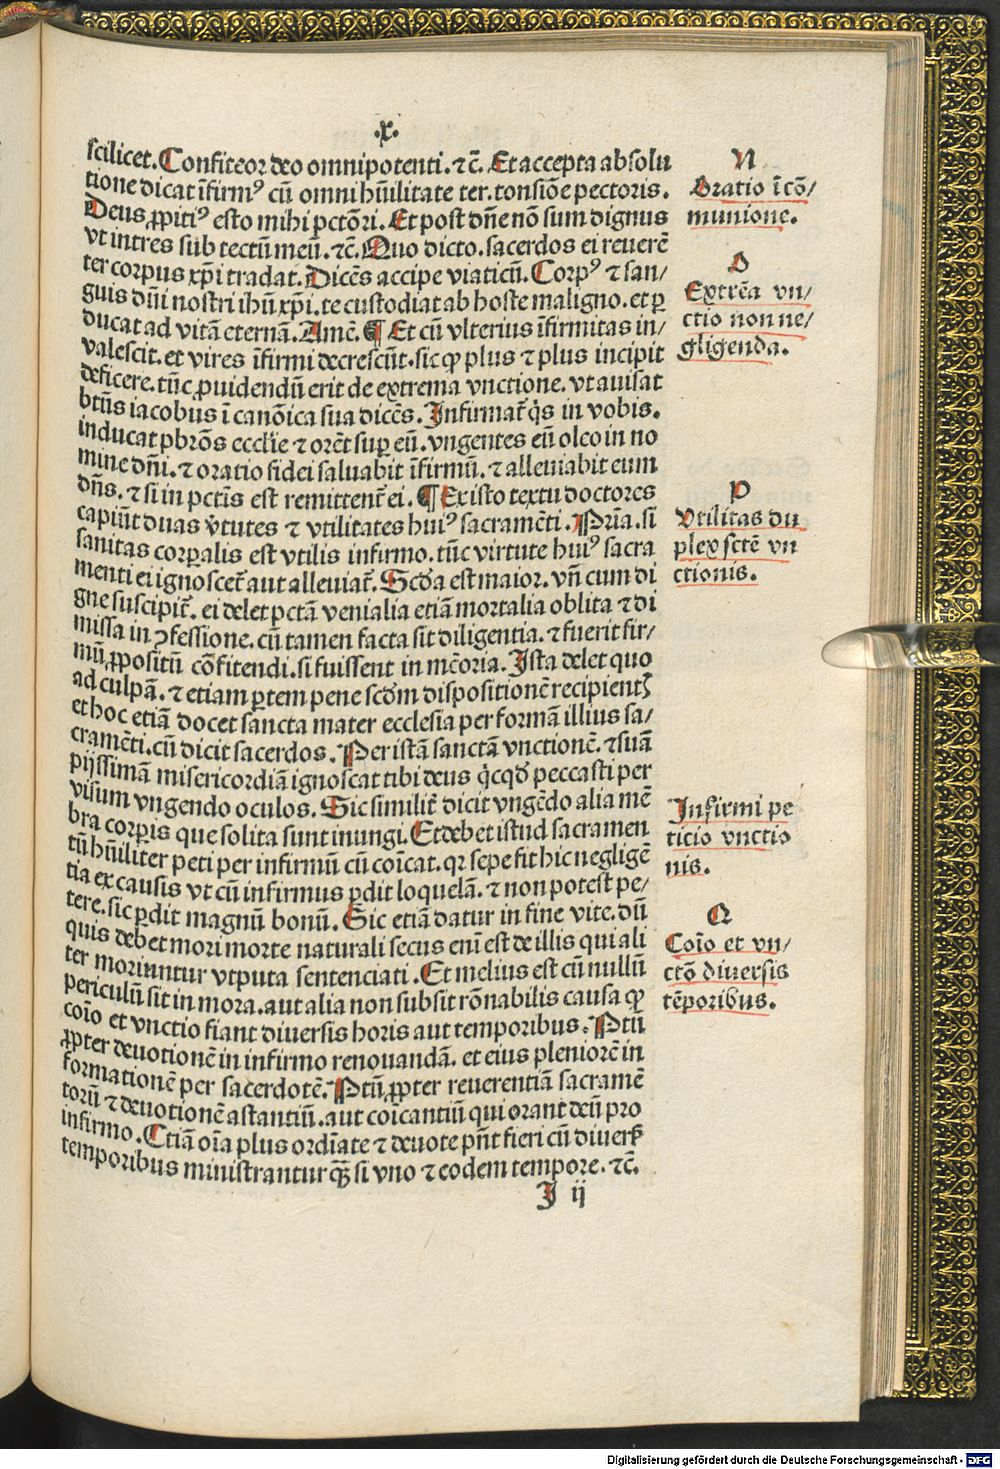 .x.
scilicet. Confiteor deo omnipotenti. ⁊c̄. Et accepta absolu
tione dicat ĩfirmꝰ cū omni hũilitate ter. tonsiõe pectoris.
Deus ꝓpitiꝰ esto mihi pctõri. Et post dñe nõ sum dignus
vt intres sub tectū meū. ⁊c̄. Quo dicto. sacerdos ei reuerē
ter corpus xp̄i tradat. Dicẽs accipe viaticū. Corpꝰ ⁊ san/
guis dñi nostri ihū xp̄i. te custodiat ab hoste maligno. et ꝑ
ducat ad vitã eternã. Amẽ. ¶ Et cū vlterius ĩfirmitas in/
valescit. et vires ĩfirmi decrescũt. sic ꝙ plus ⁊ plus incipit
deficere. tũc ꝓuidendū erit de extrema vnctione. vt auisat
btũs iacobus ĩ canõica sua dicẽs. Infirmat᷑ q̇s in vobis.
inducat p̄bros eccl̄ie ⁊ orẽt suꝑ eū. vngentes eū oleo in no
mine dñi. ⁊ oratio fidei saluabit ĩfirmū. ⁊ alleuiabit eum
dñs. ⁊ si in pctĩs est remittent᷑ ei. ¶ Ex isto textu doctores
capiũt duas v̄tutes ⁊ vtilitates huiꝰ sacramẽti. Prĩa. si
sanitas corꝑalis est vtilis infirmo. tũc virtute huiꝰ sacra
menti ei ignoscet᷑ aut alleuiat᷑. Scd̄a est maior. vñ cum di
gne suscipit᷑. ei delet pctã venialia etiã mortalia oblita ⁊ di
missa in ꝯfessione. cū tamen facta sit diligentia. ⁊ fuerit fir/
mū ꝓpositū cõfitendi. si fuissent in mẽoria. Ista delet quo
ad culpã. ⁊ etiam ꝑtem pene scd̄m dispositionē recipientꝭ
et hoc etiã docet sancta mater ecclesia per formã illius sa/
cramẽti. cū dicit sacerdos. Per istã sanctã vnctionē. ⁊ suã
pijssimã misericordiã ignoscat tibi deus q̇cqd̄ peccasti per
visum vngendo oculos. Sic similit᷑ dicit vngẽdo alia mẽ
bra corꝑis que solita sunt inungi. Et debet istud sacramen
tū hũiliter peti per infirmū cū coĩcat. qꝛ sepe fit hic negligẽ
tia ex causis vt cū infirmus ꝑdit loquelã. ⁊ non potest pe/
tere. sic ꝑdit magnū bonū. Sic etiã datur in fine vite. dū
quis debet mori morte naturali secus eni est de illis qui ali
ter moriuntur vtputa sentenciati. Et melius est cū nullū
periculū sit in mora. aut alia non subsit rõnabilis causa ꝙ
coĩo et vnctio fiant diuersis horis aut temporibus. Ptū
ꝓpter deuotionē in infirmo renouandã. et eius pleniorē in
formationē per sacerdotē. Ptū ꝓpter reuerentiã sacramẽ
torū ⁊ deuotionē astantiū. aut coĩcantiū qui orant deū pro
infirmo. Etiã oĩa plus ordĩate ⁊ deuote pñt fieri cū diuersꝭ
temporibus ministrantur q̃ȝ si vno ⁊ eodem tempore. ⁊c̄.
I ij
N
Oratio ĩ cõ/
munione.
O
Extrẽa vn/
ctio non ne/
gligenda.
P
Vtilitas du
plex sctẽ vn
ctionis.
Infirmi pe
ticio vnctio
nis.
Q
Coĩo et vn/
ctõ diuersis
tẽporibus.
Digitalisierung gefördert durch die Deutsche Forschungsgemeinschaft - DFG